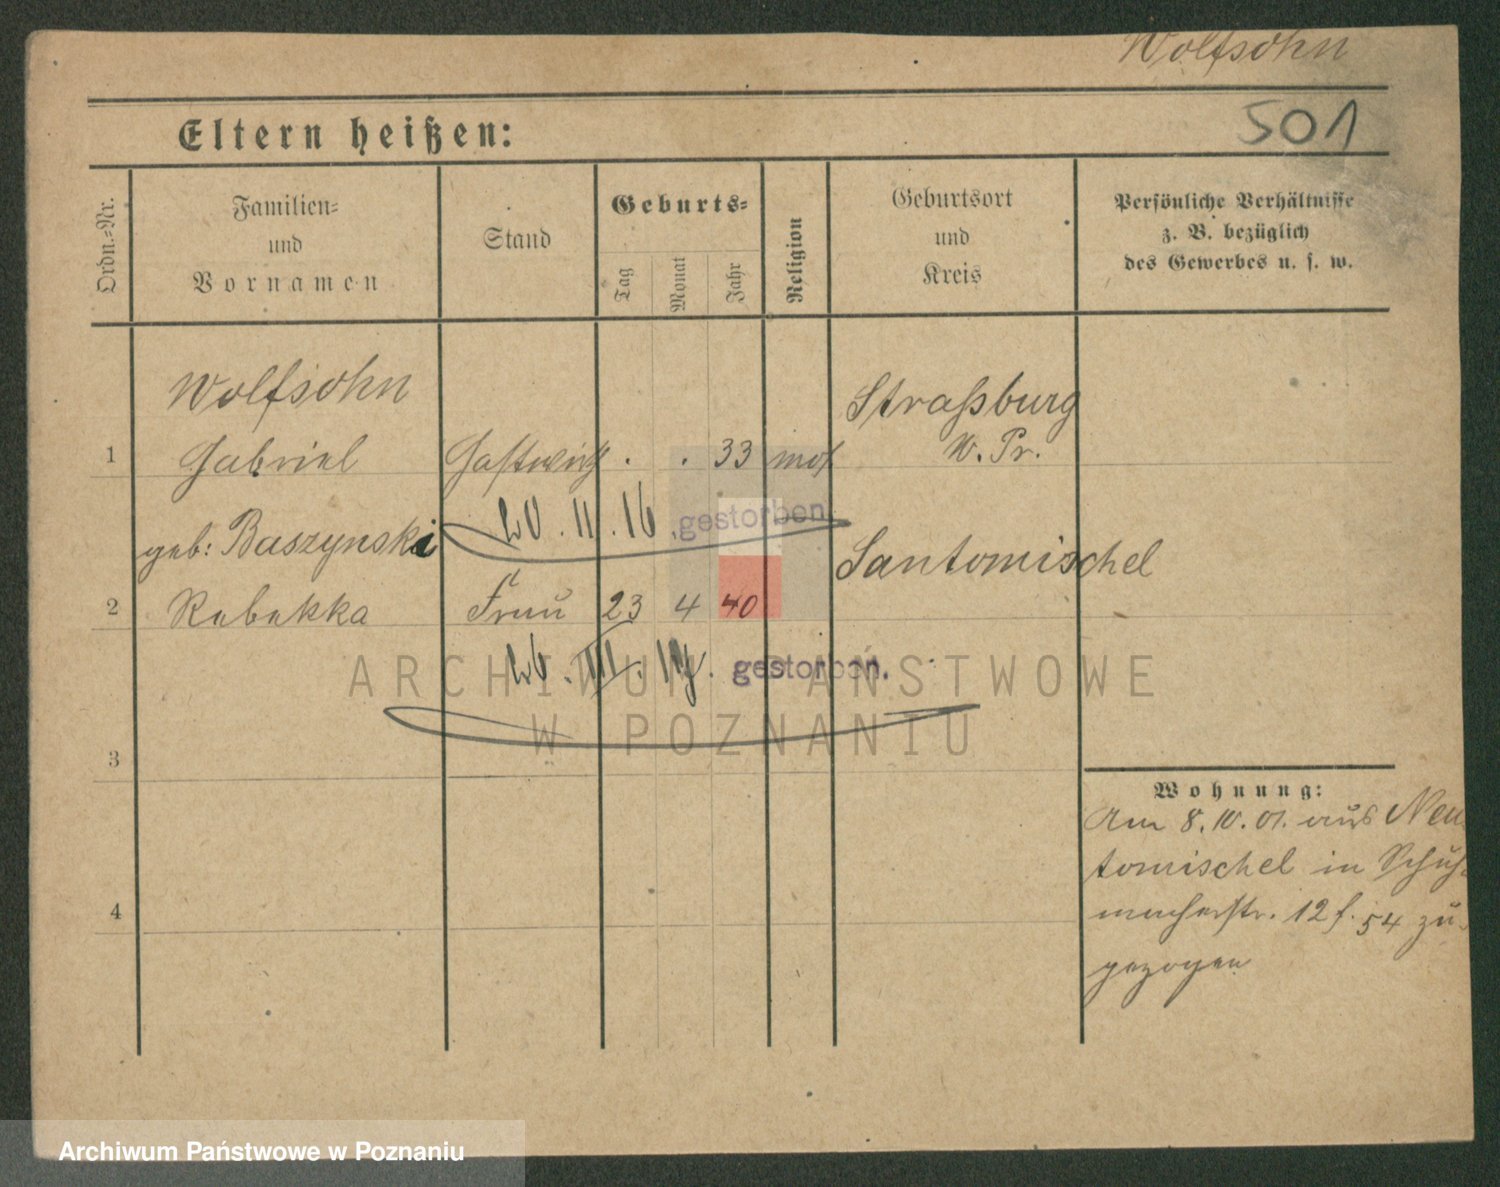 Wolfsohn
501
Eltern heißen:
Ordn.-Nr.
Familien-
und
Vornamen
Stand
Geburts-
Tag
Monat
Jahr
Religion
Geburtsort
und
Kreis
Persönliche Verhältnisse
z. B. bezüglich
des Gewerbes u. s. w.
Wolfsohn
Straßburg
1 Gabriel Gastwirth . . 33 mos W. Pr.
20. 11. 16 gestorben.
geb: Baszynski
Santomischel
2 Rebekka Frau 23 4 40
26. III. gestorben.
ARCHIWUM PAŃSTWOWE
W POZNANIU
3
Wohnung:
Am 8. 10. 01. aus Neu-
tomischel in Schuh-
4
macherstr. 12 f. 54 zu-
gezogen
Archiwum Państwowe w Poznaniu